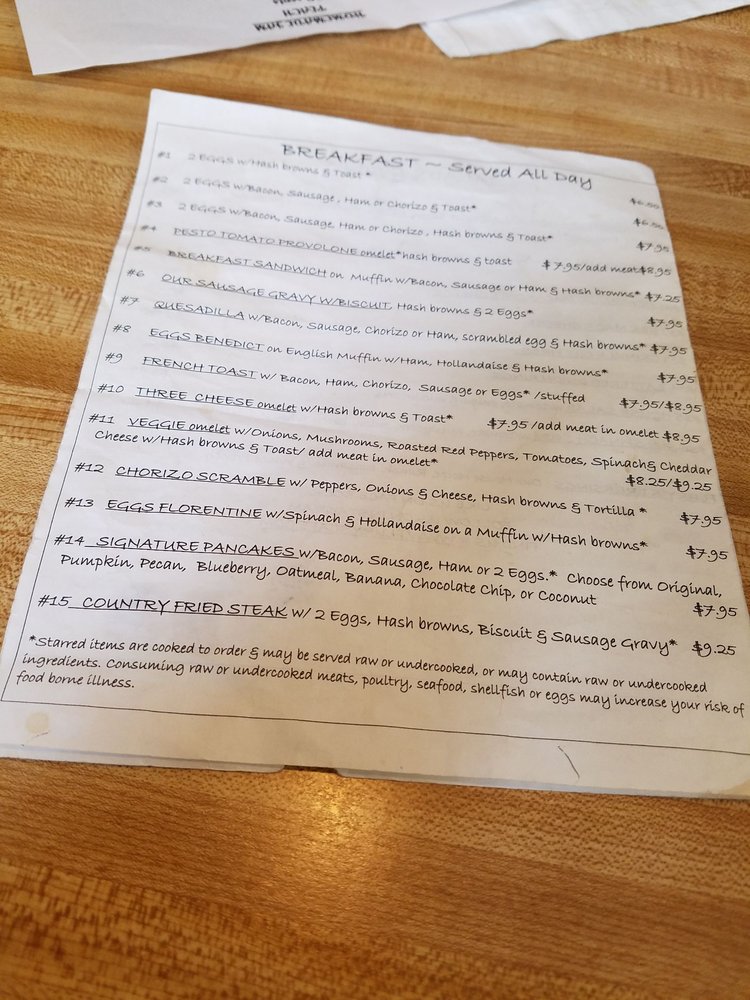 HOMEMADE JAM
PEACH
BREAKFAST ~ Served All Day
#1 2 EGGS w/Hash browns & Toast * $6.50
#2 2 EGGS w/Bacon, Sausage, Ham or Chorizo & Toast* $6.50
#3 2 EGGS w/Bacon, Sausage, Ham or Chorizo, Hash browns & Toast* $7.95
#4 PESTO TOMATO PROVOLONE omelet*hash browns & toast $7.95/add meat$8.95
#5 BREAKFAST SANDWICH on Muffin w/Bacon, Sausage or Ham & Hash browns* $7.25
#6 OUR SAUSAGE GRAVY W/BISCUIT, Hash browns & 2 Eggs* $7.95
#7 QUESADILLA w/Bacon, Sausage, Chorizo or Ham, scrambled egg & Hash browns* $7.95
#8 EGGS BENEDICT on English Muffin w/Ham, Hollandaise & Hash browns* $7.95
#9 FRENCH TOAST w/ Bacon, Ham, Chorizo, Sausage or Eggs* /stuffed $7.95/$8.95
#10 THREE CHEESE omelet w/Hash browns & Toast* $7.95 /add meat in omelet $8.95
#11 VEGGIE omelet w/Onions, Mushrooms, Roasted Red Peppers, Tomatoes, Spinach& Cheddar
Cheese w/Hash browns & Toast/ add meat in omelet* $8.25/$9.25
#12 CHORIZO SCRAMBLE w/ Peppers, Onions & Cheese, Hash browns & Tortilla * $7.95
#13 EGGS FLORENTINE w/Spinach & Hollandaise on a Muffin w/Hash browns* $7.95
#14 SIGNATURE PANCAKES w/Bacon, Sausage, Ham or 2 Eggs.* Choose from Original,
Pumpkin, Pecan, Blueberry, Oatmeal, Banana, Chocolate Chip, or Coconut $7.95
#15 COUNTRY FRIED STEAK w/ 2 Eggs, Hash browns, Biscuit & Sausage Gravy* $9.25
*Starred items are cooked to order & may be served raw or undercooked, or may contain raw or undercooked
ingredients. Consuming raw or undercooked meats, poultry, seafood, shellfish or eggs may increase your risk of
food borne illness.